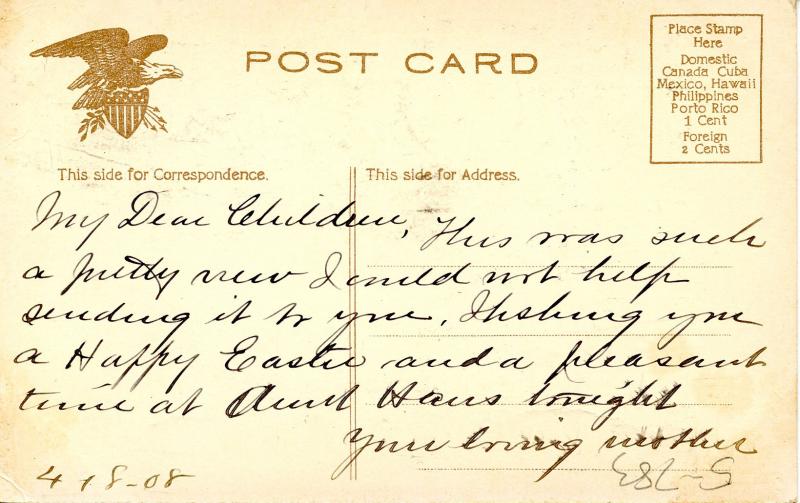 POST CARD
Place Stamp
Here
Domestic
Canada Cuba
Mexico, Hawaii
Philippines
Porto Rico
1 Cent
Foreign
2 Cents
This side for Correspondence.
This side for Address.
My Dear Children, This was such
a pretty view I could not help
sending it to you. Wishing you
a Happy Easter and a pleasant
time at Aunt Hans tonight
Your loving mother
4-18-08